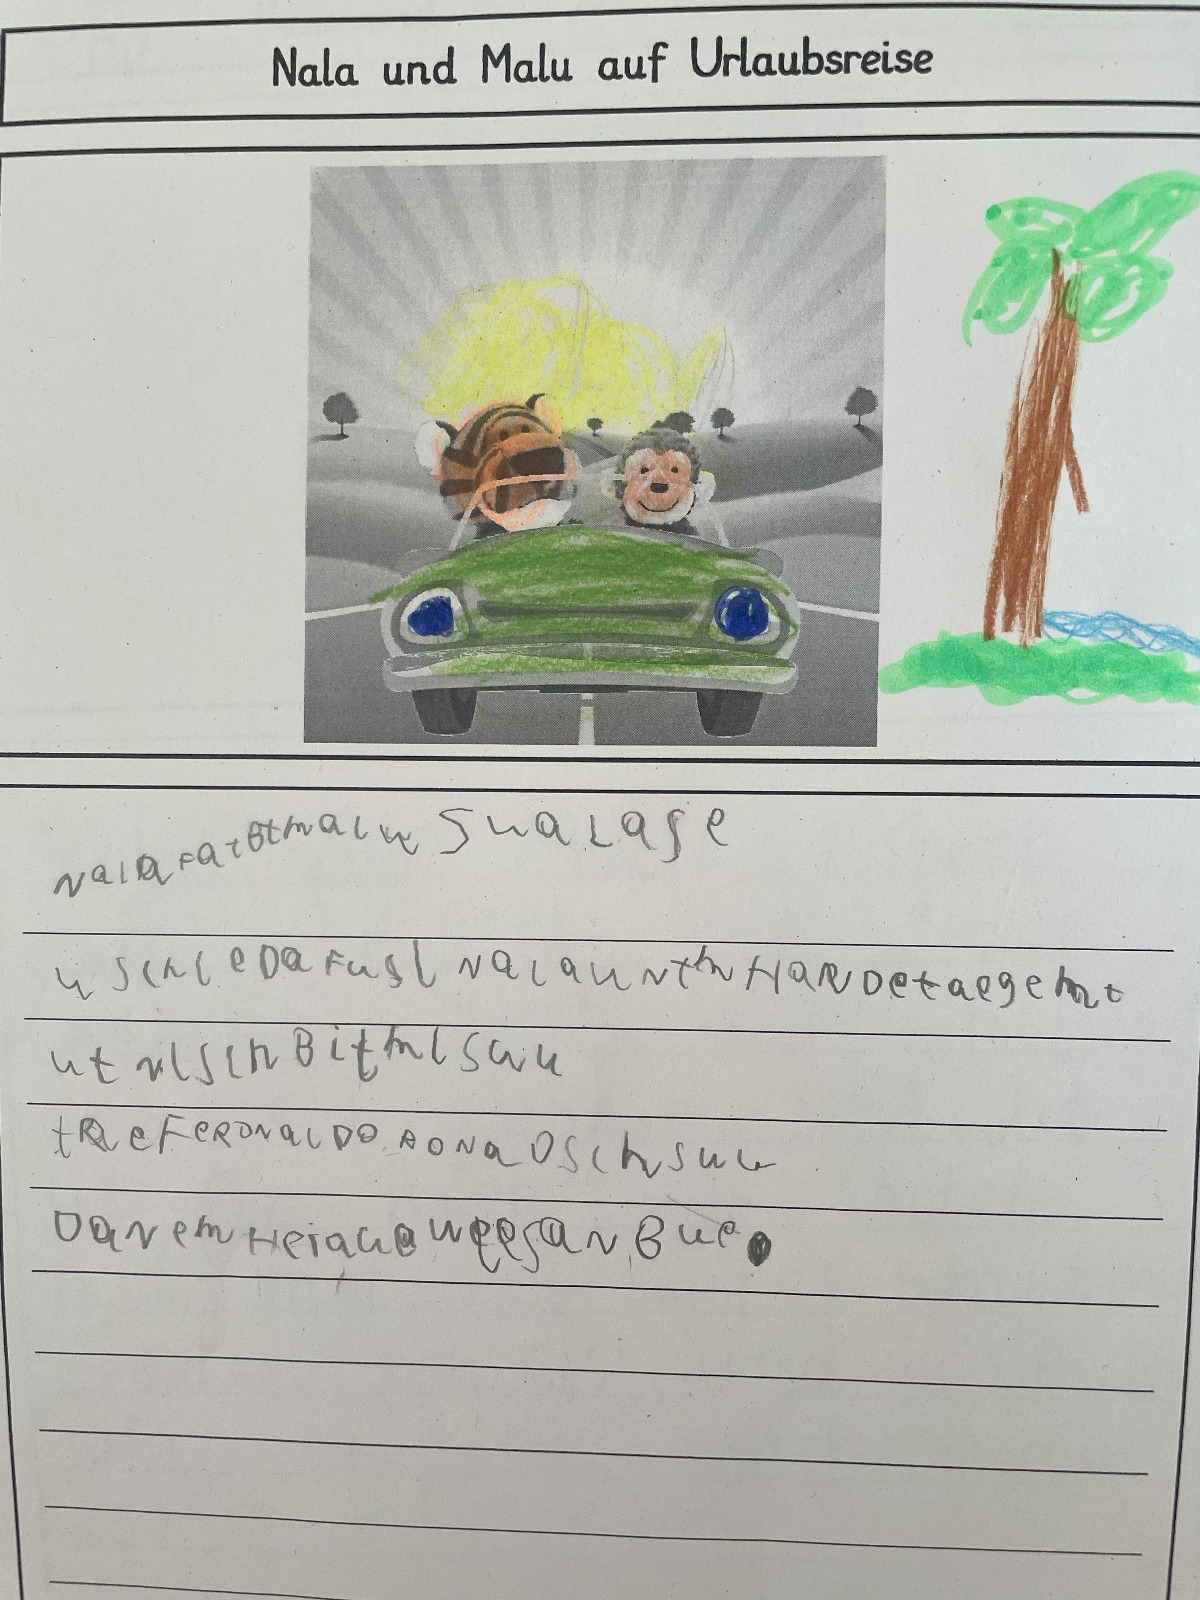 Nala und Malu auf Urlaubsreise
NalaFatBtmalu SuaLase
u SchleDaFusl NalauNtm HaNDetaegemt
ut nlSchBitmlSuu
tRaeFeRONalDO RONaDSchsuu
DaNem HeiauaweesaN Bue.